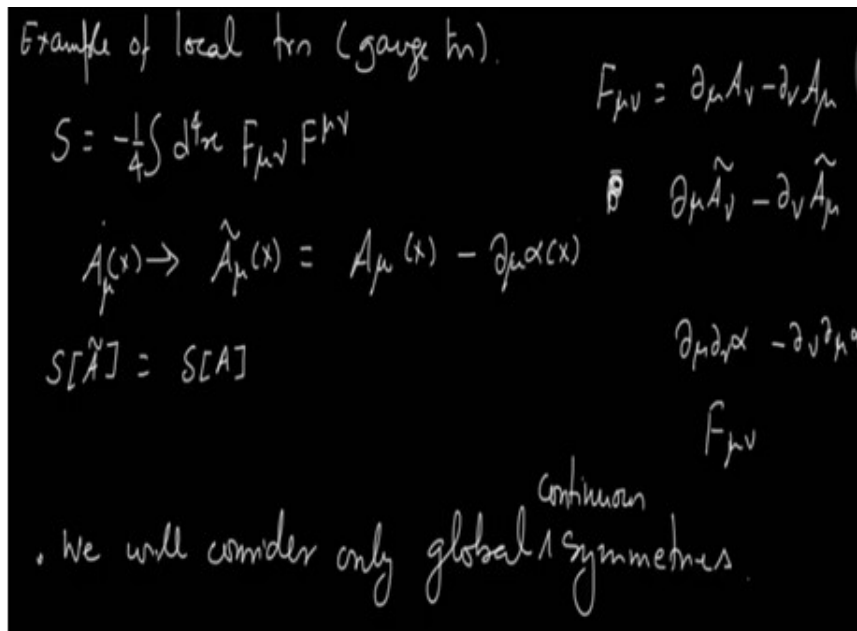 Example of local trn (gauge trn).
S = -1/4 ∫ d⁴x F_μν F^μν
A_μ(x) → Ã_μ(x) = A_μ(x) - ∂_μ α(x)
S[Ã] = S[A]
F_μν = ∂_μ A_ν - ∂_ν A_μ
∂_μ Ã_ν - ∂_ν Ã_μ
∂_μ ∂_ν α - ∂_ν ∂_μ α
F_μν
continuous
. We will consider only global ∧ symmetries.